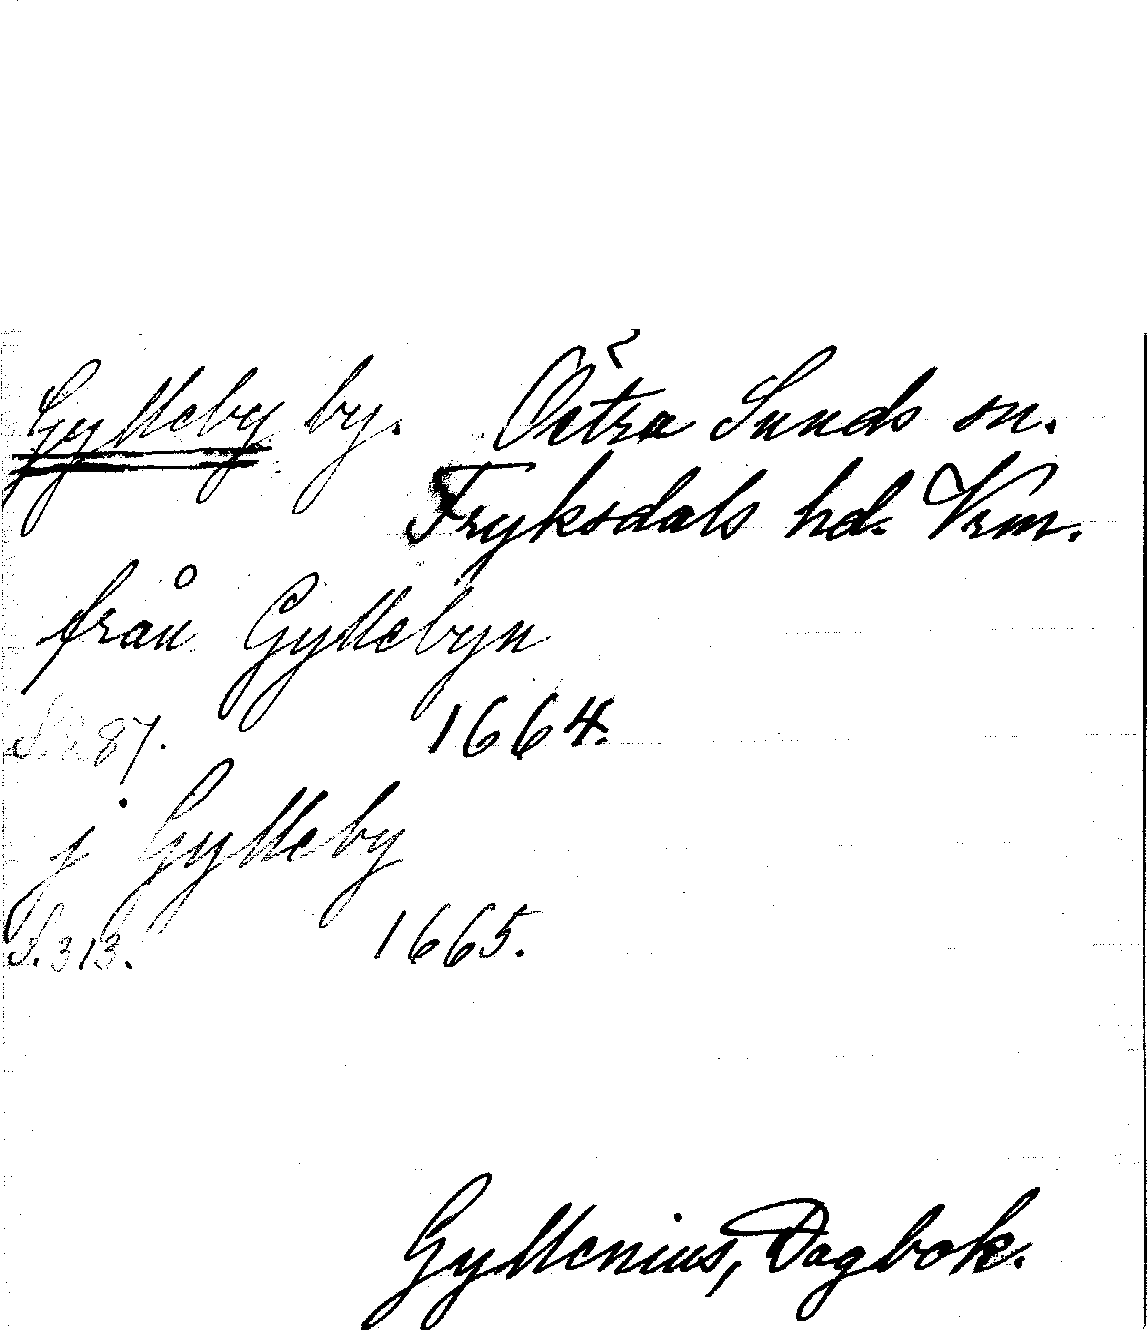 Gylleby by. Östra Sunds sn.
Fryksdals hd. Vrm.
från Gyllebyn
S. 287. 1664.
j Gylleby
S. 313. 1665.
Gyllenius, Dagbok.